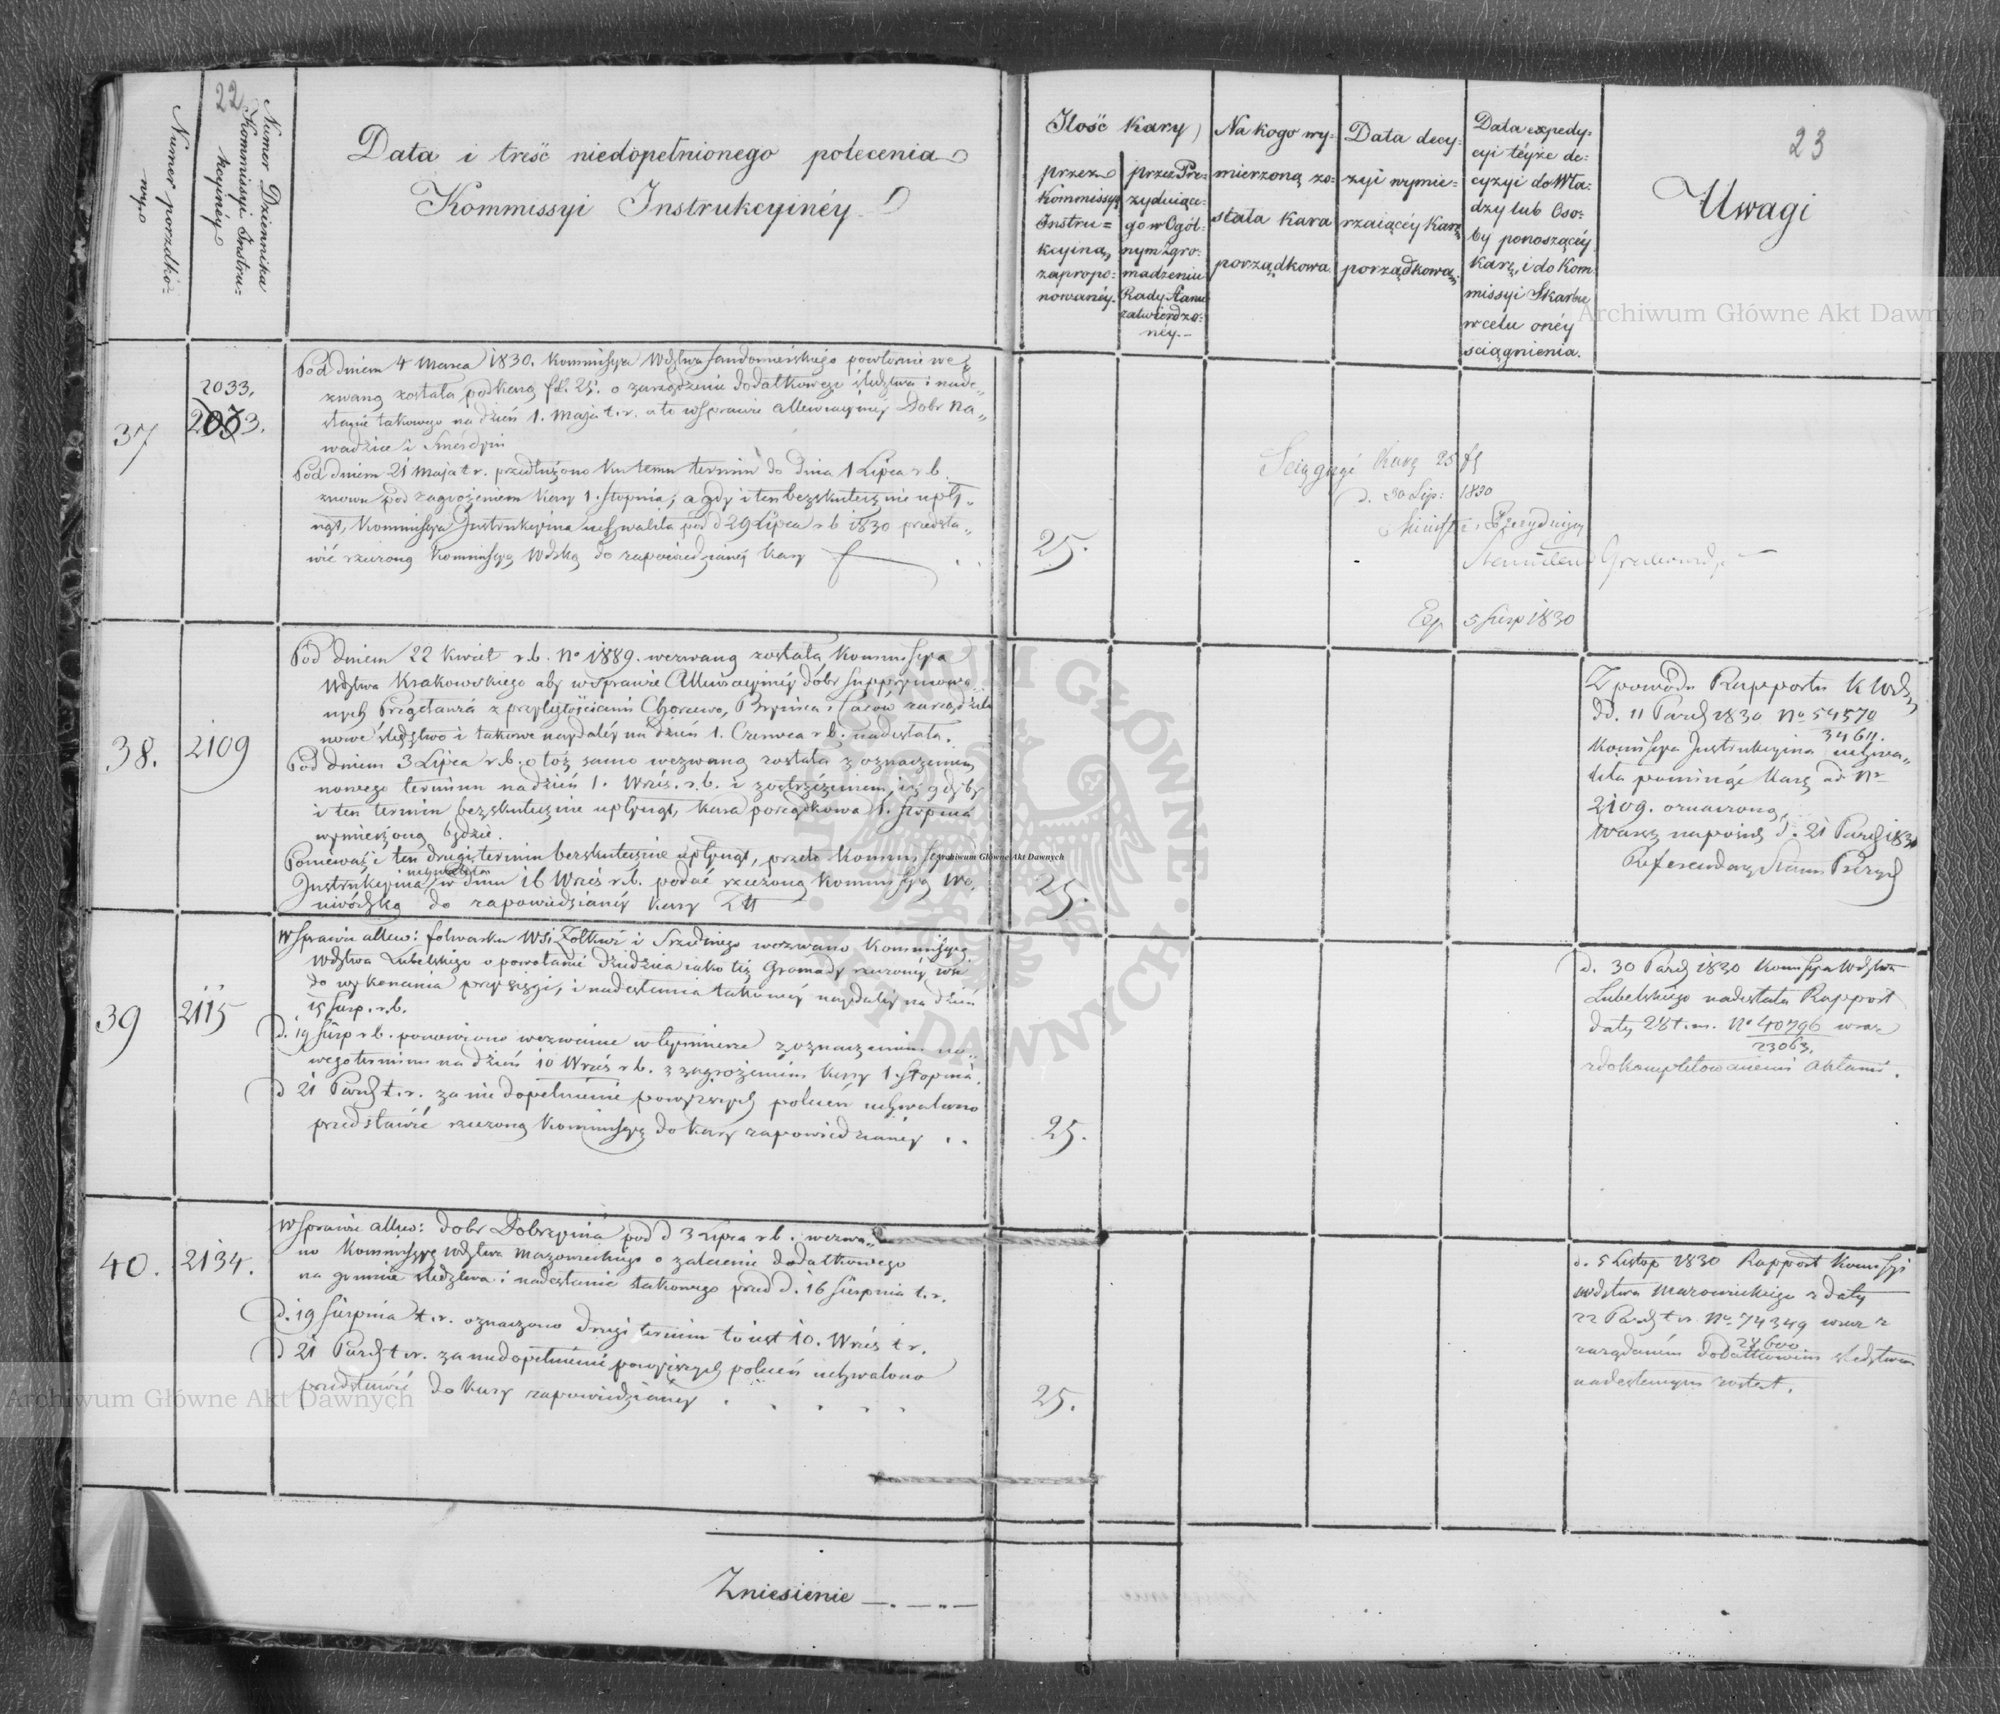 22
Numer porządko=
wy.
Numer Dziennika
Kommissyi Instru=
kcyinéy
Data i treść niedopełnionego polecenia
Kommissyi Instrukcyinéy.
Ilość kary
przez
Kommissyą
Instru=
kcyiną,
zapropo=
nowanéy.
przez Pre=
zyduiące=
go w Ogól=
nym zgro=
madzeniu
Rady Stanu
zatwierdzo=
néy.
Na kogo wy=
mierzoną zo=
stała kara
porządkowa
Data decy=
zyi wymie=
rzaiącéy karę
porządkową
Data expedy=
cyi téyże de=
cyzyi do Wła=
dzy lub Oso=
by ponoszącéy
karę, i do Kom=
missyi Skarbu
w celu onéy
sciągnienia.
23
Uwagi
37
2033.
2073.
Pod dniem 4 Marca 1830. Kommissya Wdztwa Sandomirskiego powtornie we=
zwaną została pod karą fl. 25. o zarządzenie dodatkowego śledztwa i nade=
słanie takowego na dzień 1. Maja t. r. a to w sprawie allewiacyinéy Dobr Na=
wadzice i
Pod dniem 21 Maja t r. przedłużono ku temu termin do dnia 1 Lipca r b.
znowu pod zagrożeniem kary 1. stopnia; a gdy i ten bezskutecznie upły=
nął, Kommissya Instrukcyina uchwaliła pod d 29 Lipca r b 1830 przedsta=
wić rzeczoną Kommissyą Wdzką do zapowiedzianéy kary
25.
Sciągnąć karę 25 fl
d. 30 Lip: 1830
Minist: Prezyduiący
Exp 5 Sierp 1830
38.
2109
Pod dniem 22 Kwiet r. b. No 1889. wezwaną została Kommissya
Wdztwa Krakowskiego aby w sprawie Allewiacyinéy dóbr supprymowa=
nych z przyległościami Chorzewo, i zarządziła
nowe śledztwo i takowe naydaléy na dzień 1. Czerwca r b. nadesłała.
Pod dniem 3 Lipca r. b. o toż samo wezwaną została z oznaczeniem
nowego terminu na dzień 1. Wrześ. r. b. i zastrzeżeniem, iż gdyby
i ten termin bezskutecznie upłynął, kara porządkowa 1. stopnia
wymierzoną będzie.
Ponieważ i ten drugi termin bezskutecznie upłynął, przeto Kommissya
Instrukcyina uchwaliła w dniu 16 Wrześ r. b. podać rzeczoną Kommissyą Wo=
iewódzką do zapowiedzianéy kary
25.
Z powodu Rapportu K Wdz
dd. 11 Paźd 1830 No 54570
34611.
Komissya Instrukcyina uchwa=
liła pominąć karę ad Nr
2109. oznaczoną.
Warsz na posiedz d. 21 Paźd 1830
Referendarz Stanu
39
2115
W sprawie allew: folwarku Wsi Żółkwi i wezwano Kommissyą
Wdztwa Lubelskiego o powołanie dziedzica iako też Gromady rzeczonéy wsi
do wykonania przysięgi, i nadesłania takowéy naydaléy na dzień
15 Sierp. r. b.
d. 19 Sierp r b. ponowiono wezwanie w téymierze z oznaczeniem no=
wego terminu na dzień 10 Wrześ r b. z zagrożeniem kary 1. stopnia.
d 21 Paźd t. r. za nie dopełnienie powyższych poleceń uchwalono
przedstawić rzeczoną Kommissyą do kary zapowiedzianéy . .
25.
d. 30 Paźd 1830 Komissya Wdztwa
Lubelskiego nadesłała Rapport
daty 28 t. m. No 40796 wraz
23063.
z dokompletowanemi Aktami.
40.
2134.
W sprawie allew: dobr Dobrzynia pod d 3 Lipca r b. wezwa=
no Kommissyę Wdztwa Mazowieckiego o zalecenie dodatkowego
na gruncie śledztwa i nadesłanie takowego przed d. 16 Sierpnia t. r.
d. 19 Sierpnia t. r. oznaczono drugi termin to iest 10. Wrześ t r.
d 21 Paźd t r. za niedopełnienie powyższych poleceń uchwalono
przedstawić do kary zapowiedzianéy . . . . .
25.
d. 5 Listop 1830 Rapport Komissyi
Wdztwa Mazowieckiego z daty
22 Paźd t r. No. 74349 wraz z
28600
zarządzonem dodatkowem śledztwem
nadesłanym został.
Zniesienie
Archiwum Główne Akt Dawnych
Archiwum Główne Akt Dawnych
Archiwum Główne Akt Dawnych